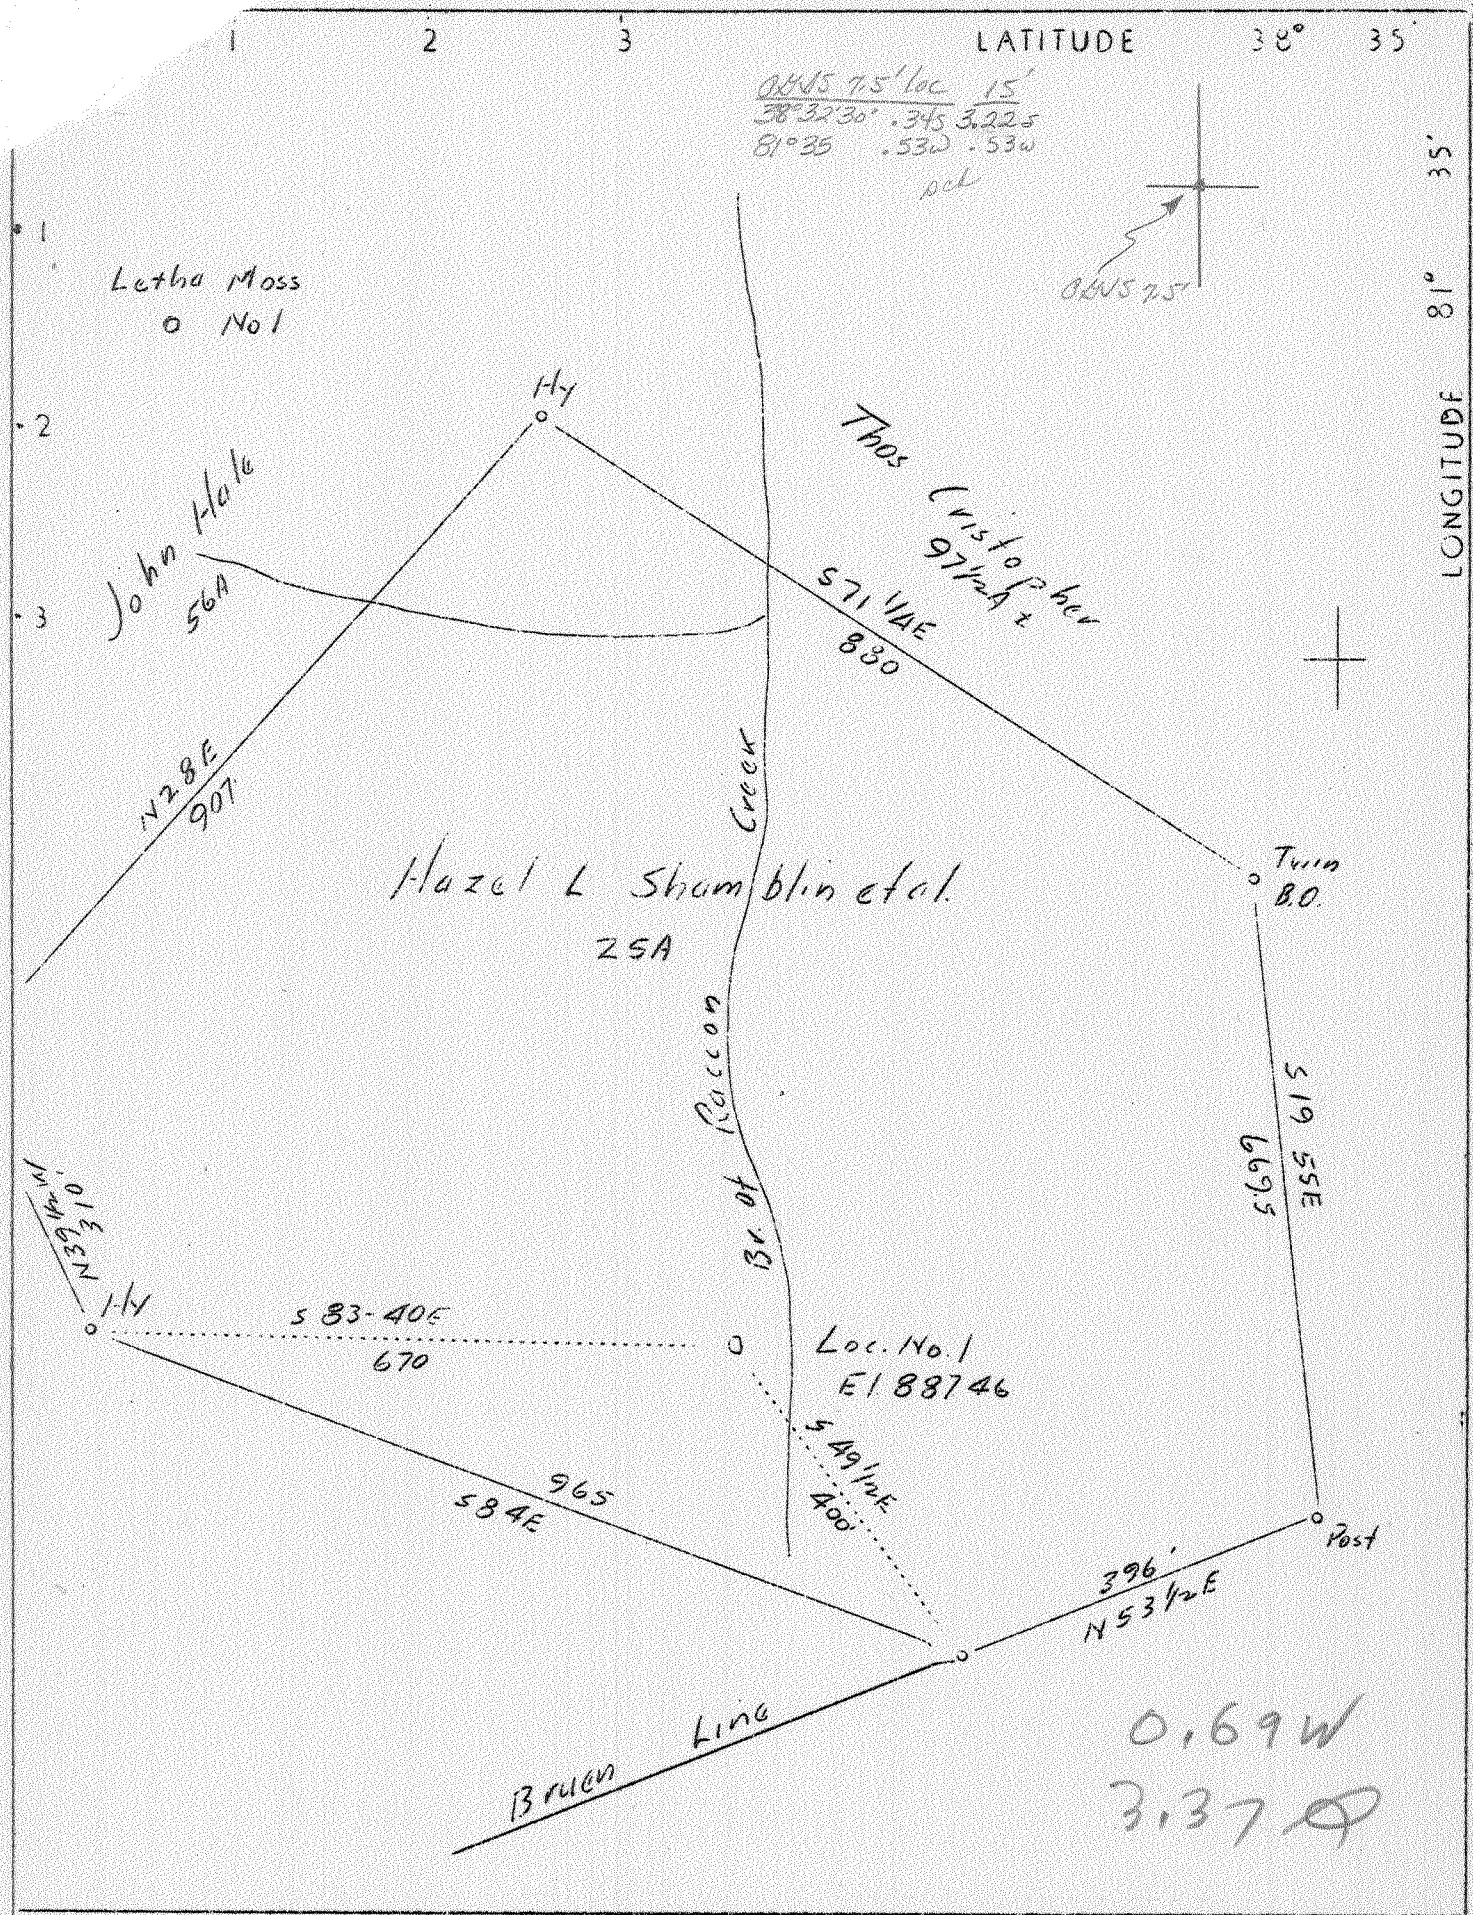 1 2 3 LATITUDE 38° 35'
7.5' loc 15'
38°32'30" .34s 3.22s
81°35 .53w .53w
35'
81°
LONGITUDE
1
2
3
7.5'
Letha Moss
No 1
Hy
John Hale
56A
Thos Cristopher
97 1/2 A ±
S 71 1/4 E
830
N 28 E
907
Creek
Hazel L Shamblin etal.
25A
Twin
B.O.
Raccon
S 19 55E
669.5
N 39 1/2 W
310'
Br. of
Hy
S 83-40E
670
Loc. No. 1
El 887 46
S 49 1/2 E
400'
965
S 84 E
Post
396'
N 53 1/2 E
Bruen Line
0.69 W
3.37